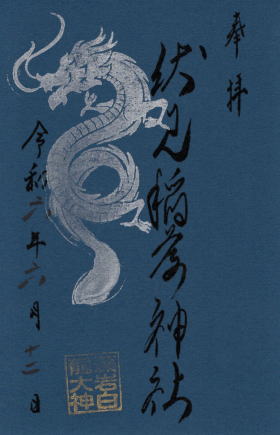 奉拝
伏見稲荷神社
令和六年六月十二日
岩白
龍大神